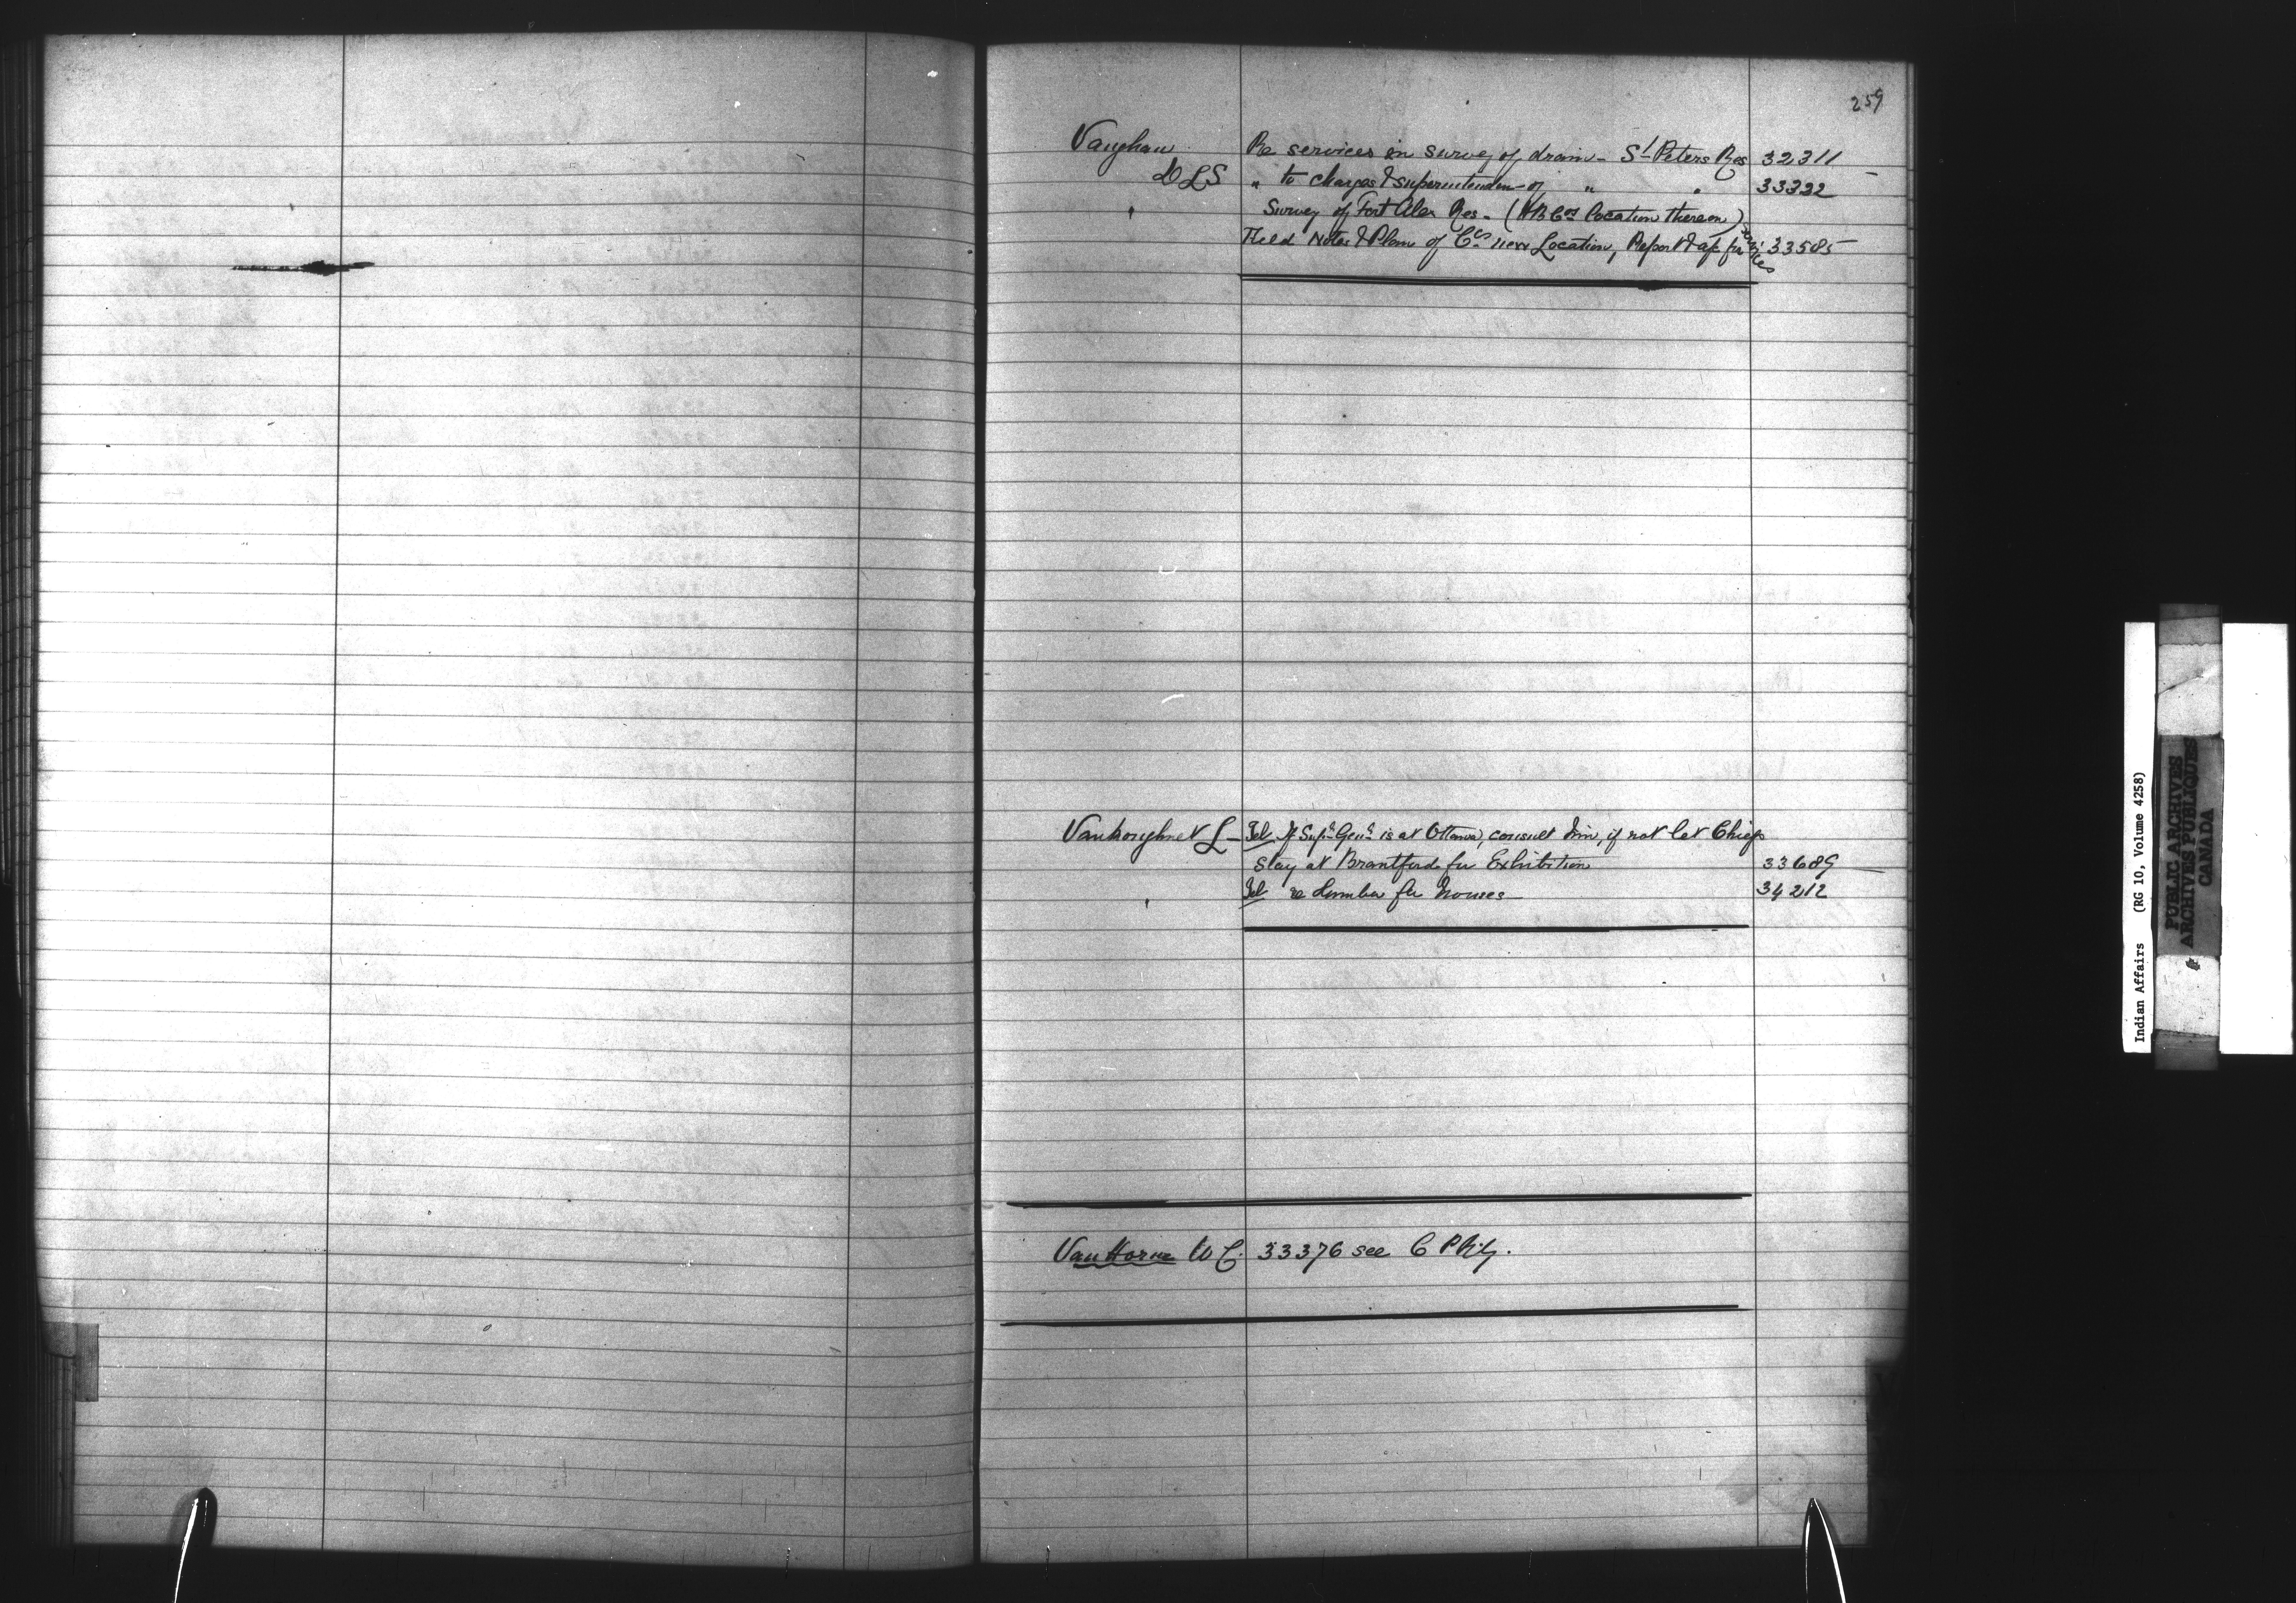 259
Vaughan Re services in survey of drain - St Peters Res 32311 -
DLS " to charges & superintenden - of " " 33332
Survey of Fort Alex Res - (HB Cos location thereon)
Field Notes & Plan of Cos new Location, Report & a/c for services 33585
Vankoughnet L - Tel If Supt Genl is at Ottawa, consult him, if not let Chiefs
stay at Brantford for Exhibition 33689
Tel re Lumber for houses 34212
Van Horne W C. 33376 see C P Rly.
Indian Affairs (RG 10, Volume 4258)
PUBLIC ARCHIVES
ARCHIVES PUBLIQUES
CANADA